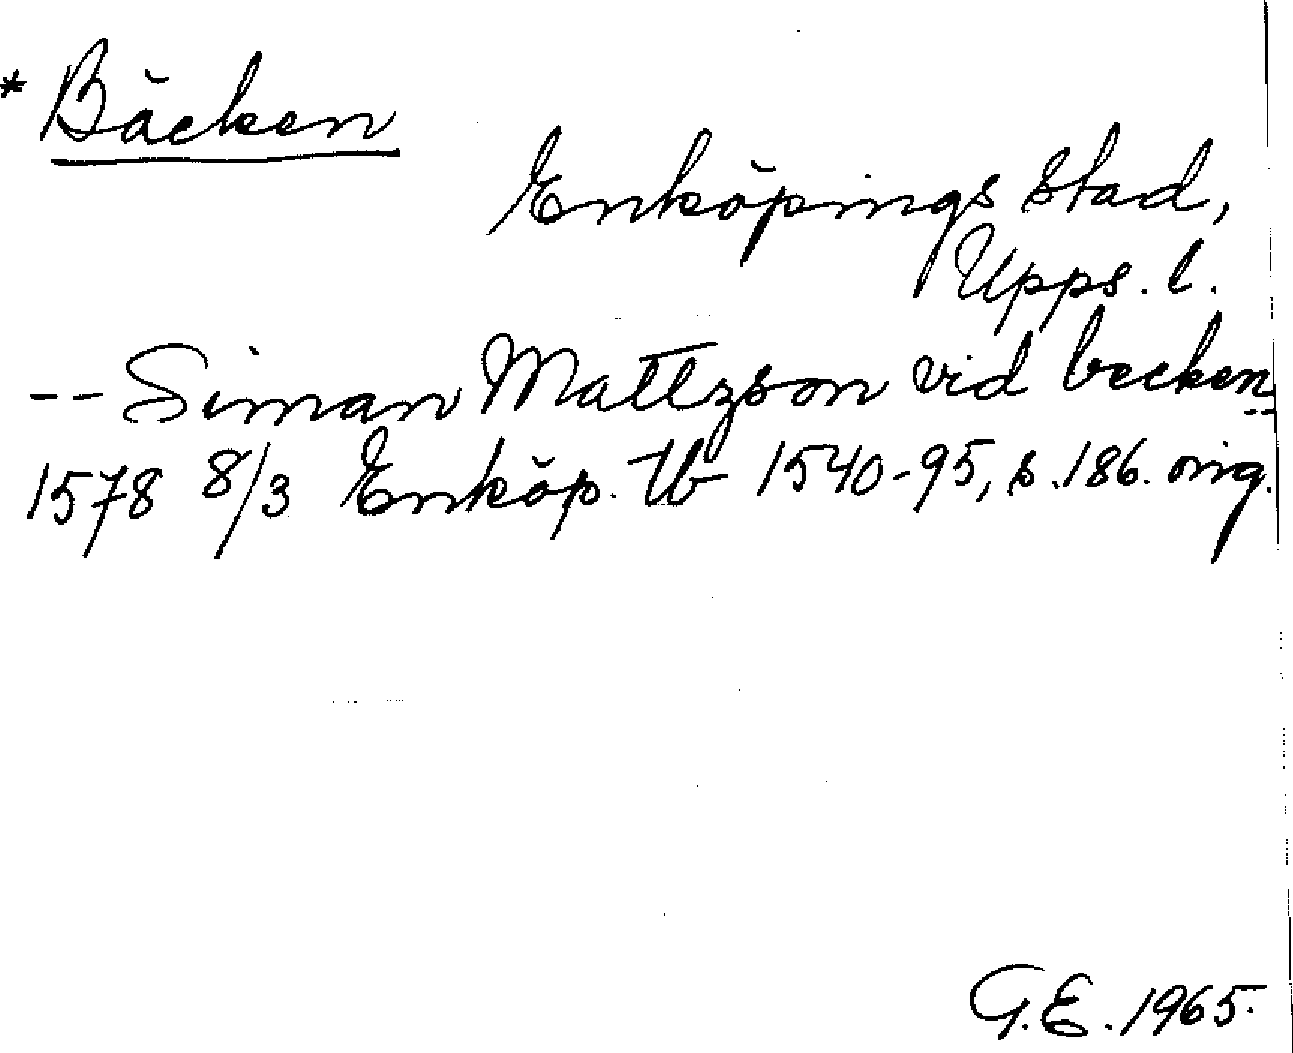 * Bäcken
Enköpings stad,
Upps. l.
-- Siman Mattzson vid becken --
1578 8/3 Enköp. tb 1540-95, s. 186. orig.
G.E. 1965.